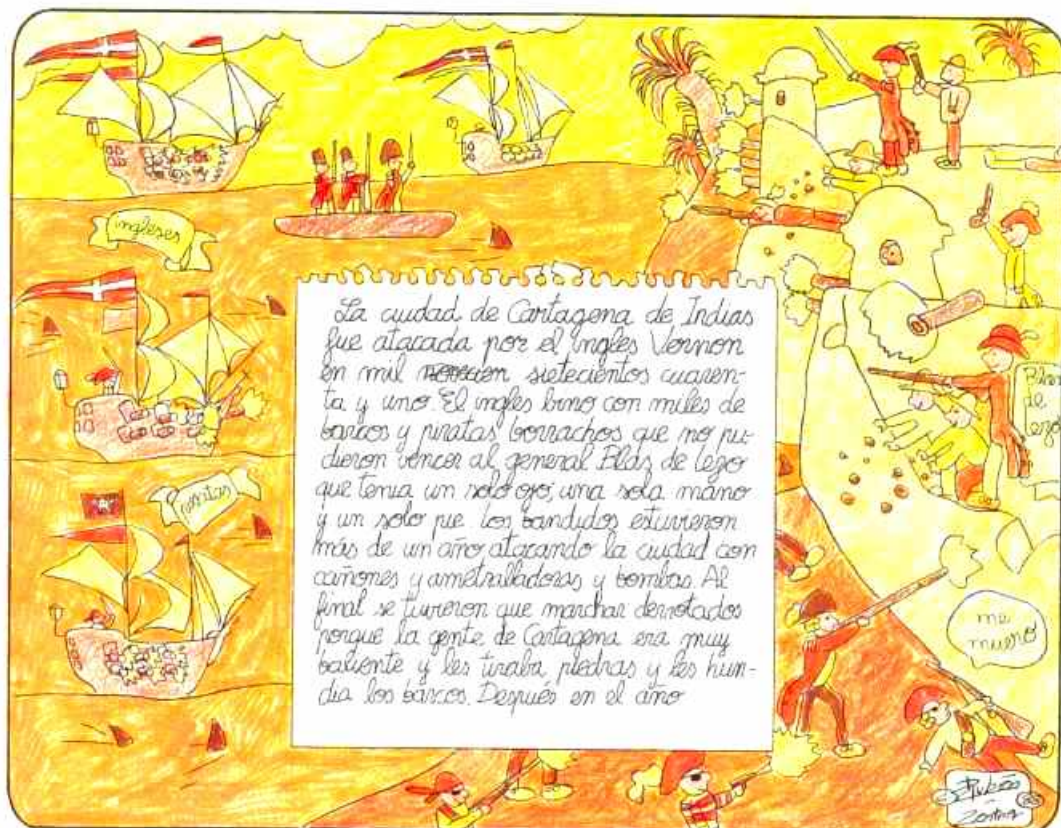 ingleses
La ciudad de Cartagena de Indias
fue atacada por el ingles Vernon
en mil sietecientos cuaren-
ta y uno. El ingles bino con miles de
barcos y piratas borrachos que no pu-
dieron vencer al general Blaz de lezo
que tenia un solo ojo, una sola mano
y un solo pie. los bandidos estuvieron
más de un año atacando la ciudad con
cañones y ametralladoras y bombas. Al
final se tuvieron que marchar derrotados
porque la gente de Cartagena era muy
baliente y les tiraba piedras y les hun-
dia los barcos. Después en el año
de
me
muero